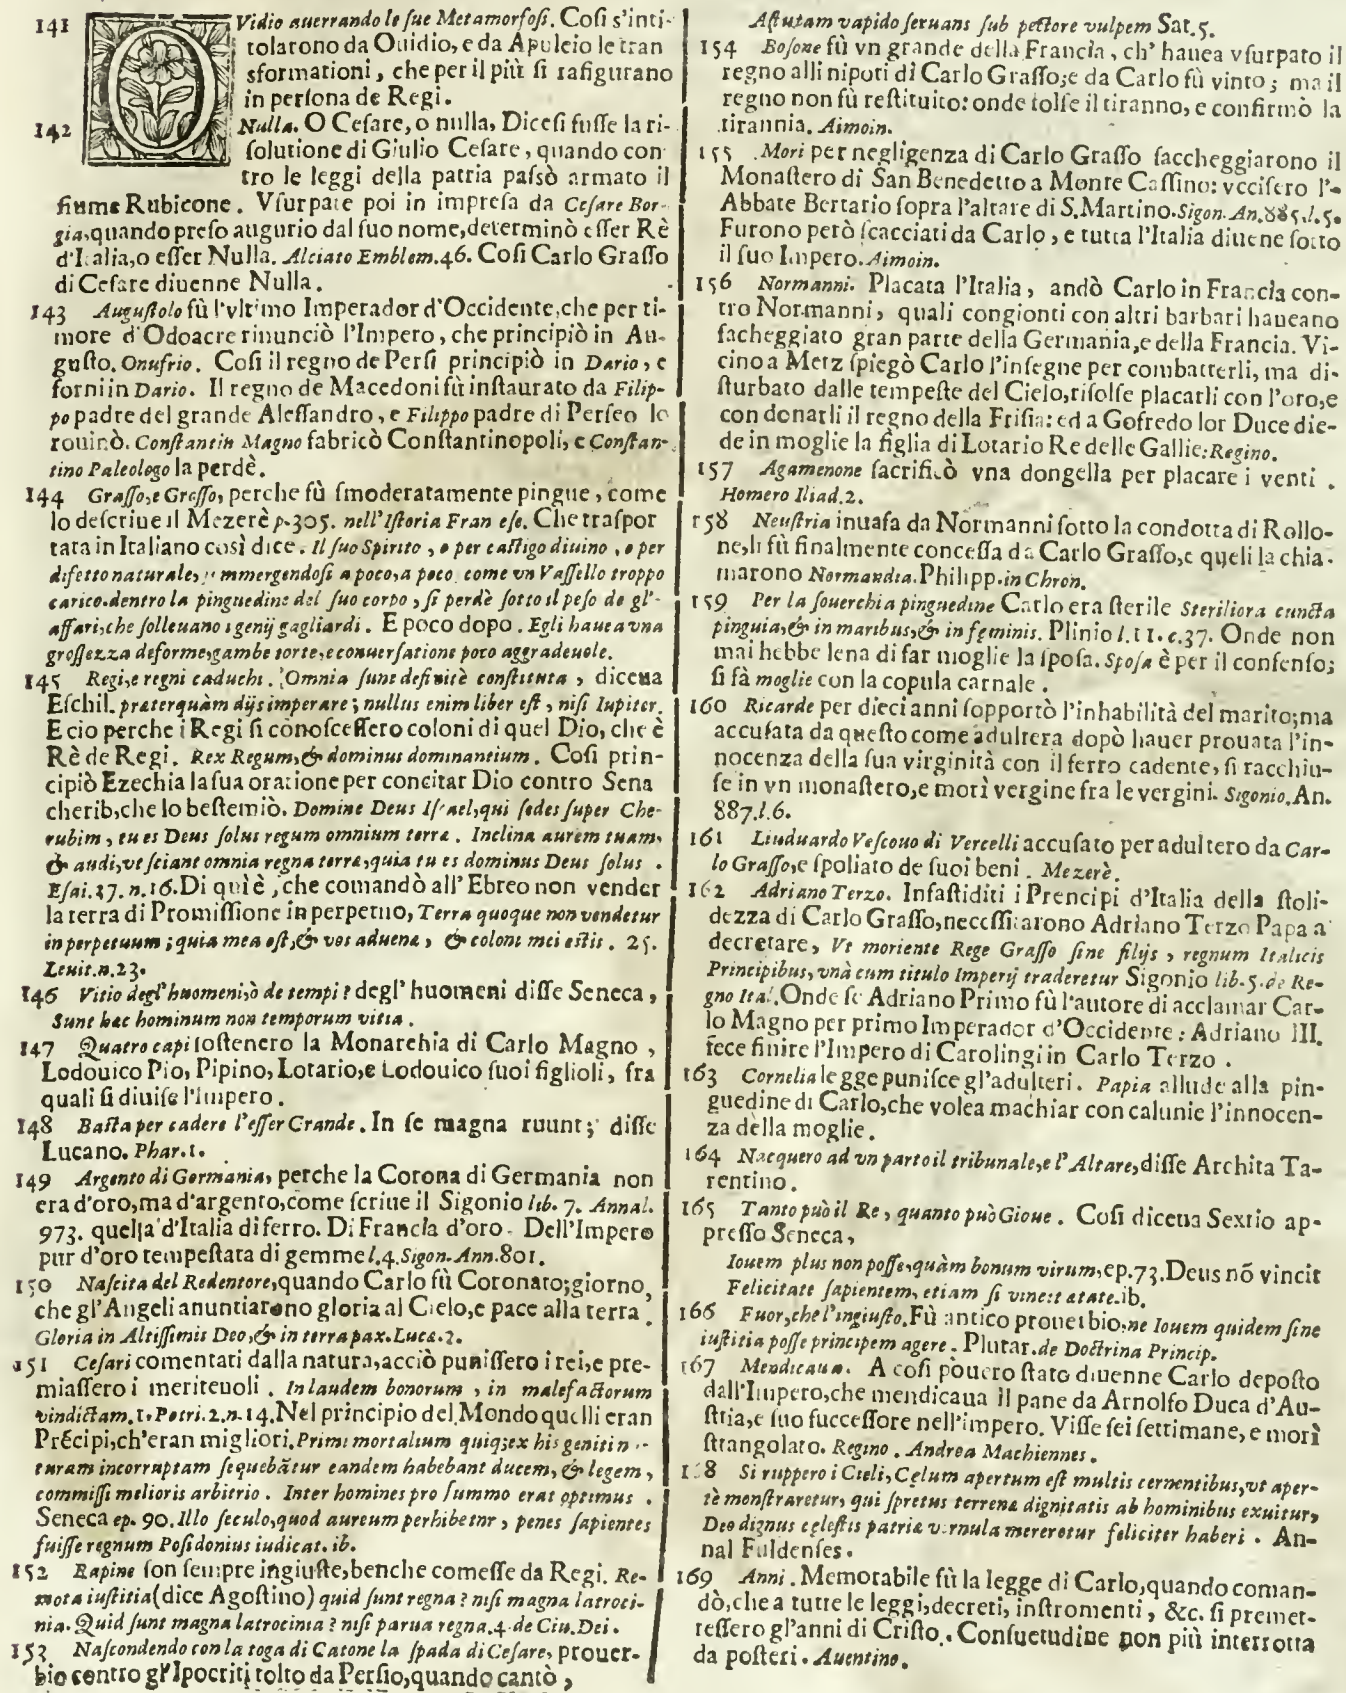 141 OVidio auerrando le sue Metamorfosi. Cosi s'inti-
tolarono da Ouidio, e da Apuleio le tran
sformationi, che per il più si rafigurano
in persona de Regi.
142 Nulla. O Cesare, o nulla, Dicesi fusse la ri-
solutione di Giulio Cesare, quando con
tro le leggi della patria passò armato il
fiume Rubicone. Vsurpate poi in impresa da Cesare Bor-
gia, quando preso augurio dal suo nome, determinò esser Rè
d'Italia, o esser Nulla. Alciato Emblem. 46. Cosi Carlo Grasso
di Cesare diuenne Nulla.
143 Augustolo fù l'vltimo Imperador d'Occidente, che per ti-
more d'Odoacre rinunciò l'Impero, che principiò in Au-
gusto. Onufrio. Cosi il regno de Persi principiò in Dario, e
forni in Dario. Il regno de Macedoni fù instaurato da Filip-
po padre del grande Alessandro, e Filippo padre di Perseo lo
rouinò. Constantin Magno fabricò Constantinopoli, e Constan-
tino Paleologo la perdè.
144 Grasso, e Grosso, perche fù smoderatamente pingue, come
lo descriue il Mezerè p. 305. nell'Istoria Fran ese. Che traspor
tata in Italiano così dice. Il suo Spirito, o per castigo diuino, o per
difetto naturale, mmergendosi a poco, a poco come vn Vassello troppo
carico. dentro la pinguedine del suo corpo, si perdè sotto il peso de gl'-
affari, che solleuano i genij gagliardi. E poco dopo. Egli hauea vna
grossezza deforme, gambe torte, e conuersatione poco aggradeuole.
145 Regi, e regni caduchi. Omnia sunt definitè constituta, diceua
Eschil. præterquàm dijs imperare; nullus enim liber est, nisi Iupiter.
E cio perche i Regi si conoscessero coloni di quel Dio, che è
Rè de Regi. Rex Regum, & dominus dominantium. Cosi prin-
cipiò Ezechia la sua oratione per concitar Dio contro Sena
cherib, che lo bestemiò. Domine Deus Israel, qui sedes super Che-
rubim, tu es Deus solus regum omnium terræ. Inclina aurem tuam,
& audi, vt sciant omnia regna terræ, quia tu es dominus Deus solus.
Esai. 37. n. 16. Di quì è, che comandò all'Ebreo non vender
la terra di Promissione in perpetuo, Terra quoque non vendetur
in perpetuum; quia mea est, & vos aduenæ, & coloni mei estis. 25.
Leuit. n. 23.
146 Vitio degl'huomeni, ò de tempi? degl'huomeni disse Seneca,
Sunt hæc hominum non temporum vitia.
147 Quatro capi sostenero la Monarchia di Carlo Magno,
Lodouico Pio, Pipino, Lotario, e Lodouico suoi figlioli, fra
quali si diuise l'Impero.
148 Basta per cadere l'esser Grande. In se magna ruunt; disse
Lucano. Phar. 1.
149 Argento di Germania, perche la Corona di Germania non
era d'oro, ma d'argento, come scriue il Sigonio lib. 7. Annal.
973. quella d'Italia di ferro. Di Francia d'oro. Dell'Impero
pur d'oro tempestata di gemme l. 4. Sigon. Ann. 801.
150 Nascita del Redentore, quando Carlo fù Coronato; giorno,
che gl'Angeli anuntiarono gloria al Cielo, e pace alla terra.
Gloria in Altissimis Deo, & in terra pax. Lucæ. 2.
151 Cesari comentati dalla natura, acciò punissero i rei, e pre-
miassero i meriteuoli. In laudem bonorum, in malefactorum
vindictam. 1. Petri. 2. n. 14. Nel principio del Mondo quelli eran
Précipi, ch'eran migliori. Primi mortalium quiq; ex his geniti n
turam incorruptam sequebātur eandem habebant ducem, & legem,
commissi melioris arbitrio. Inter homines pro summo erat optimus.
Seneca ep. 90. Illo seculo, quod aureum perhibetnr, penes sapientes
fuisse regnum Posidonius iudicat. ib.
152 Rapine son sempre ingiuste, benche comesse da Regi. Re-
mota iustitia (dice Agostino) quid sunt regna? nisi magna latroci-
nia. Quid sunt magna latrocinia? nisi parua regna. 4. de Ciu. Dei.
153 Nascondendo con la toga di Catone la spada di Cesare, prouer-
bio contro gl'Ipocriti tolto da Persio, quando cantò,
Astutam vapido seruans sub pectore vulpem Sat. 5.
154 Bosone fù vn grande della Francia, ch'hauea vsurpato il
regno alli nipoti di Carlo Grasso; e da Carlo fù vinto; ma il
regno non fù restituito: onde tolse il tiranno, e confirmò la
tirannia. Aimoin.
155 Mori per negligenza di Carlo Grasso saccheggiarono il
Monastero di San Benedetto a Monte Cassino: vccisero l'-
Abbate Bertario sopra l'altare di S. Martino. Sigon. An. 885. l. 5.
Furono però scacciati da Carlo, e tutta l'Italia diuene sotto
il suo Impero. Aimoin.
156 Normanni. Placata l'Italia, andò Carlo in Francia con-
tro Normanni, quali congionti con altri barbari haueano
sacheggiato gran parte della Germania, e della Francia. Vi-
cino a Metz spiegò Carlo l'insegne per combatterli, ma di-
sturbato dalle tempeste del Cielo, risolse placarli con l'oro, e
con donarli il regno della Frisia: ed a Gofredo lor Duce die-
de in moglie la figlia di Lotario Re delle Gallie: Regino.
157 Agamenone sacrificò vna dongella per placare i venti.
Homero Iliad. 2.
158 Neustria inuasa da Normanni sotto la condotta di Rollo-
ne, li fù finalmente concessa da Carlo Grasso, e queli la chia-
marono Normandia. Philipp. in Chron.
159 Per la souerchia pinguedine Carlo era sterile Steriliora cuncta
pinguia, & in maribus, & in feminis. Plinio l. 11. c. 37. Onde non
mai hebbe lena di far moglie la sposa. Sposa è per il consenso;
si fà moglie con la copula carnale.
160 Ricarde per dieci anni sopportò l'inhabilità del marito; ma
accusata da questo come adultera dopò hauer prouata l'in-
nocenza della sua virginità con il ferro cadente, si racchiu-
se in vn monastero, e morì vergine fra le vergini. Sigonio. An.
887. l. 6.
161 Liuduardo Vescouo di Vercelli accusato per adultero da Car-
lo Grasso, e spoliato de suoi beni. Mezerè.
162 Adriano Terzo. Infastiditi i Prencipi d'Italia della stoli-
dezza di Carlo Grasso, necessitarono Adriano Terzo Papa a
decretare, Vt moriente Rege Grasso sine filijs, regnum Italicis
Principibus, vnà cum titulo Imperij traderetur Sigonio lib. 5. de Re-
gno Ital. Onde se Adriano Primo fù l'autore di acclamar Car-
lo Magno per primo Imperador d'Occidente: Adriano III.
fece finire l'Impero di Carolingi in Carlo Terzo.
163 Cornelia legge punisce gl'adulteri. Papia allude alla pin-
guedine di Carlo, che volea machiar con calunie l'innocen-
za della moglie.
164 Nacquero ad vn parto il tribunale, e l'Altare, disse Archita Ta-
rentino.
165 Tanto può il Re, quanto può Gioue. Cosi diceua Sextio ap-
presso Seneca,
Iouem plus non posse, quàm bonum virum, ep. 73. Deus nõ vincit
Felicitate sapientem, etiam si vincit ætate. ib.
166 Fuor, che l'ingiusto. Fù antico prouerbio, ne Iouem quidem sine
iustitia posse principem agere. Plutar. de Doctrina Princip.
167 Mendicaua. A cosi pouero stato diuenne Carlo deposto
dall'Impero, che mendicaua il pane da Arnolfo Duca d'Au-
stria, e suo successore nell'impero. Visse sei settimane, e morì
strangolato. Regino. Andrea Machiennes.
1 8 Si ruppero i Cieli, Cęlum apertum est multis cernentibus, vt aper-
tè monstraretur, qui spretus terrena dignitatis ab hominibus exuitur,
Deo dignus cęlestis patriæ vernula mereretur feliciter haberi. An-
nal Fuldenses.
169 Anni. Memorabile fù la legge di Carlo, quando coman-
dò, che a tutte le leggi, decreti, instromenti, &c. si premet-
tessero gl'anni di Cristo. Consuetudine non più interrotta
da posteri. Auentino.